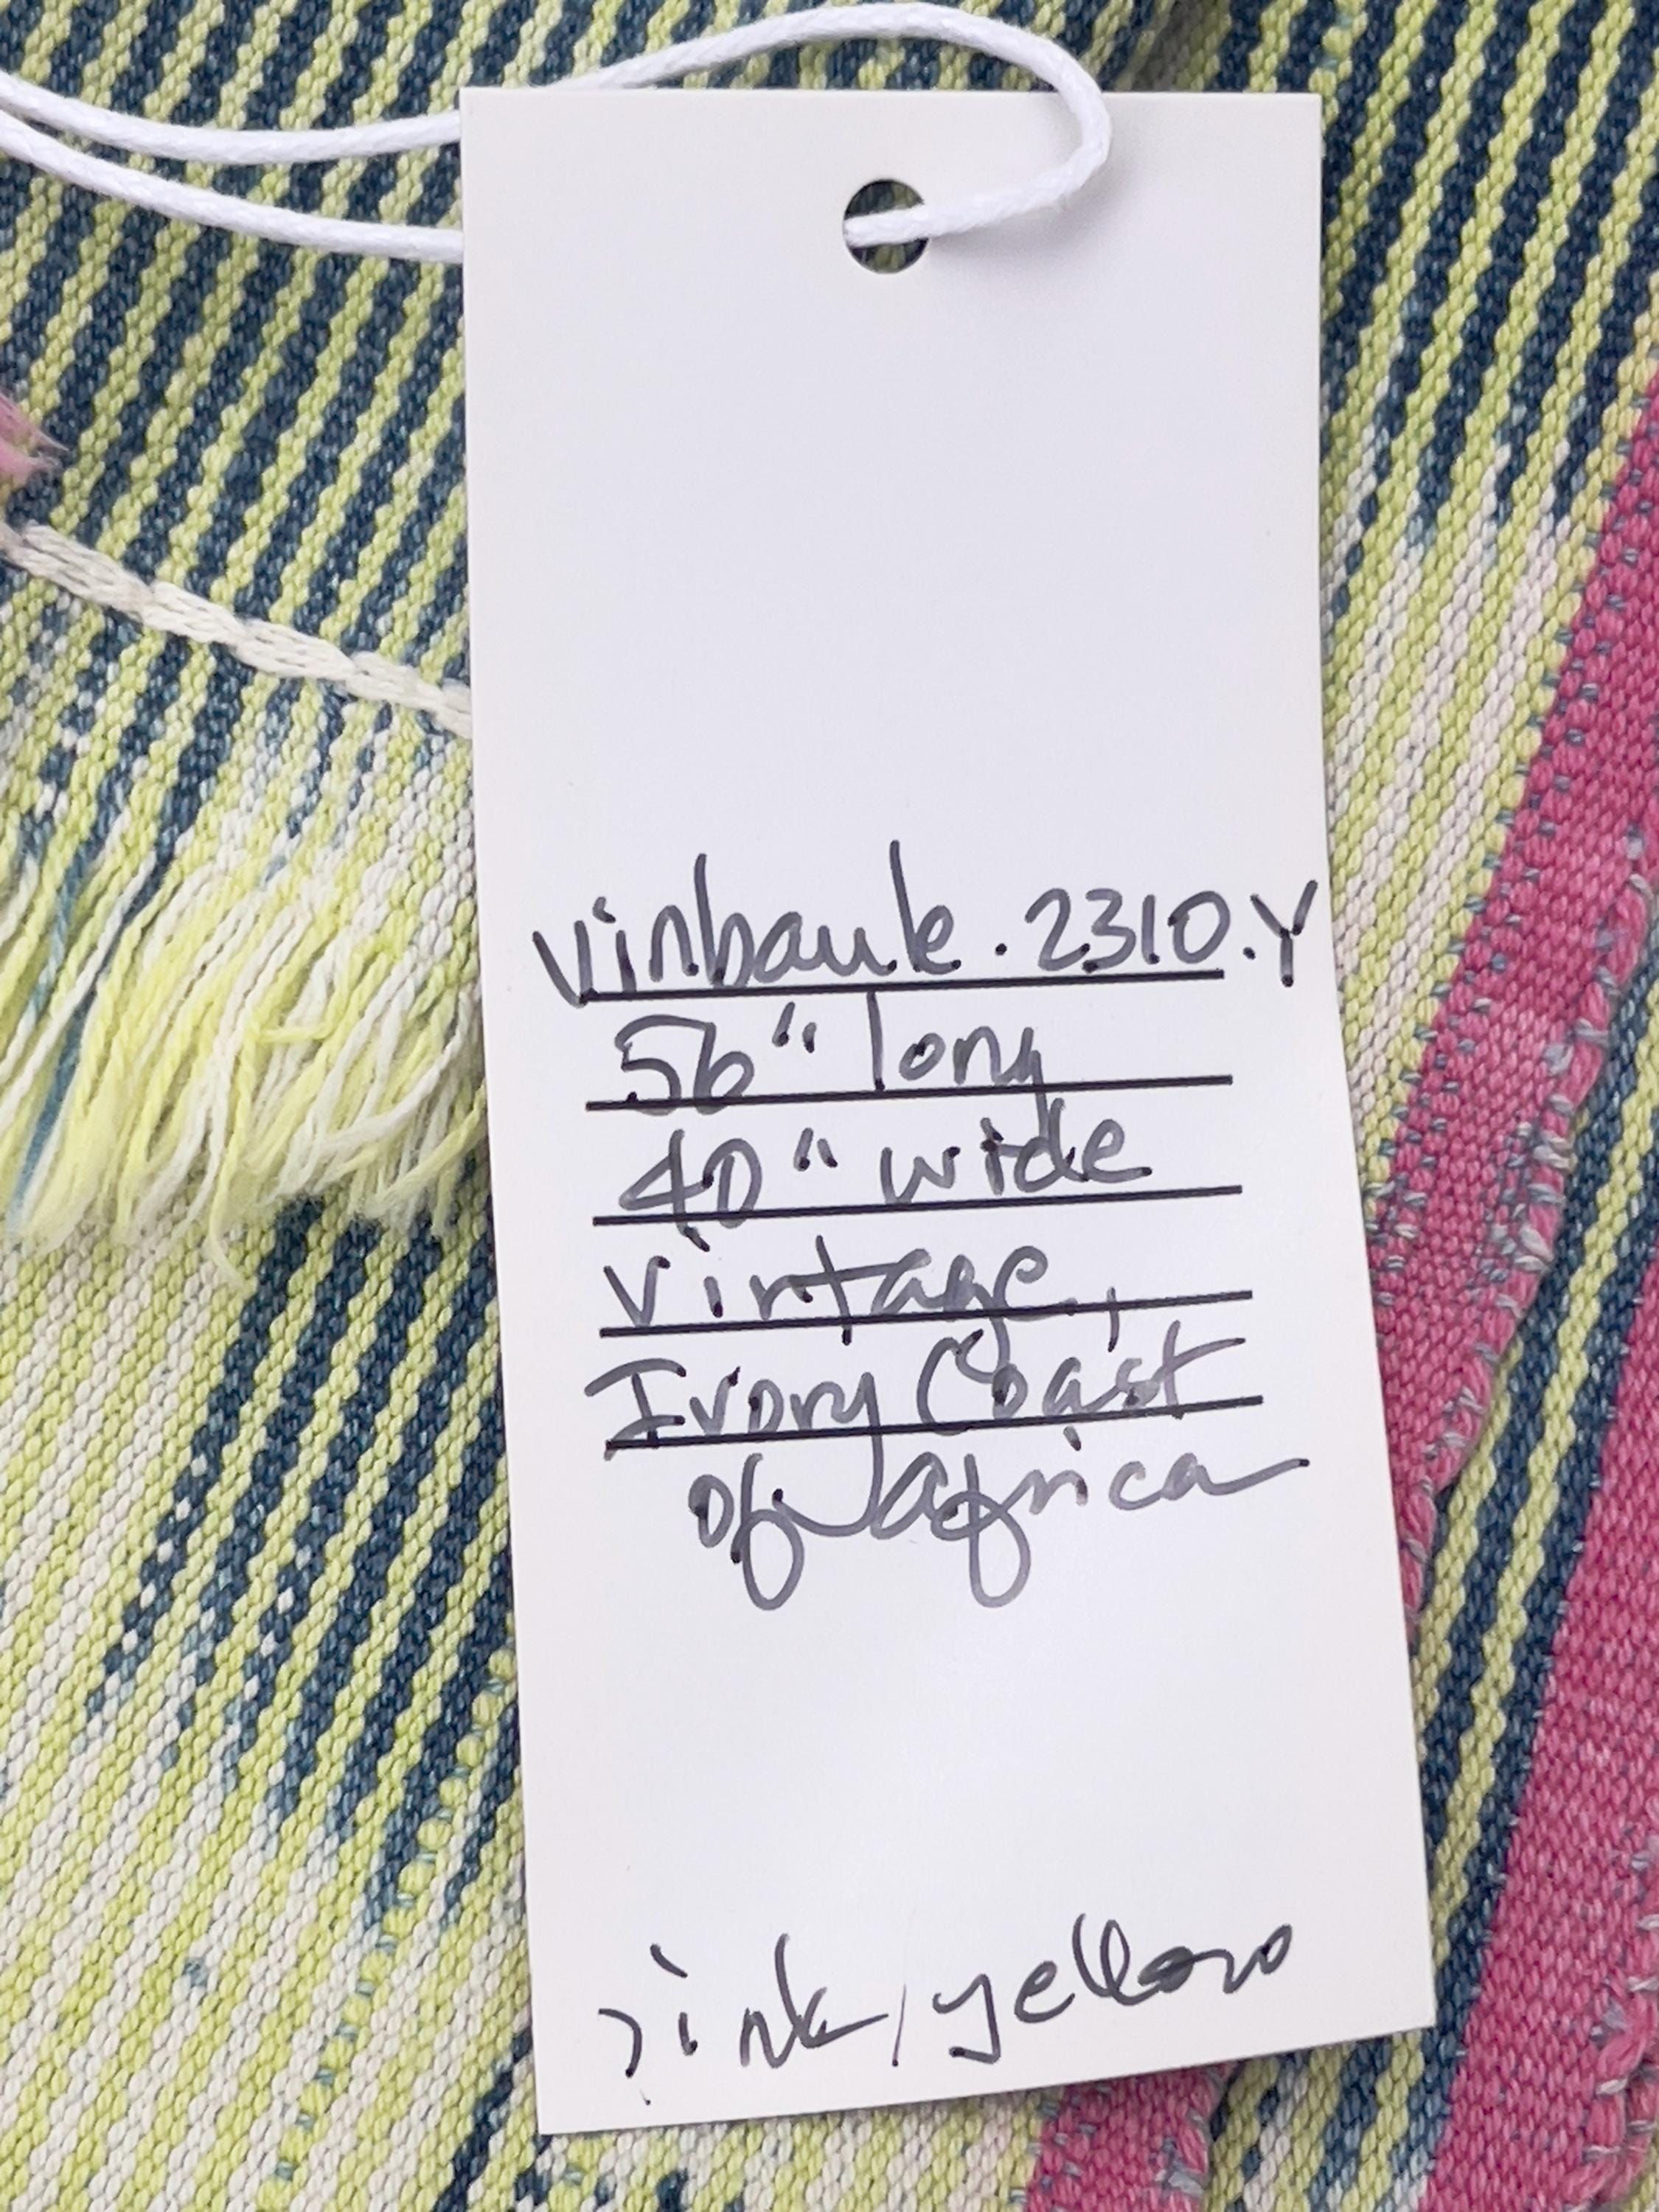 Vinbaule.2310.Y
56" long
40" wide
Vintage,
Ivory Coast
of Africa
pink/yellow